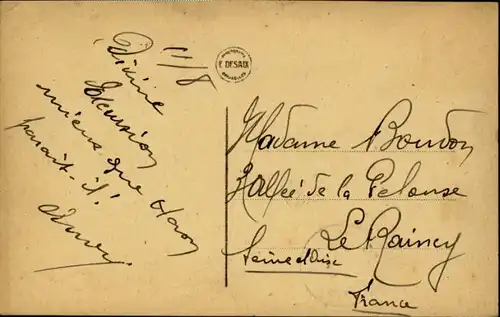 11/8
Divine
Excursion
mieux que
paraît-il!
E. DESAIX
BRUXELLES
Madame Bourdon
2 Allée de la Pelouse
Le Raincy
Seine et Oise
France